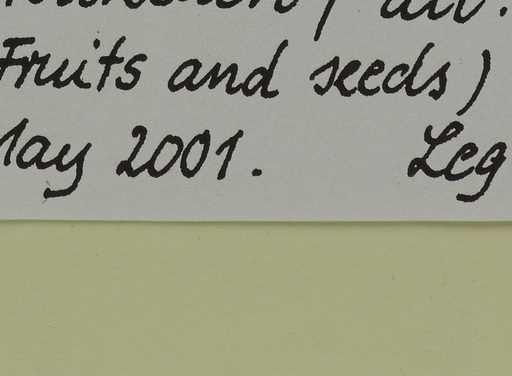 Fruits and seeds)
May 2001. Leg